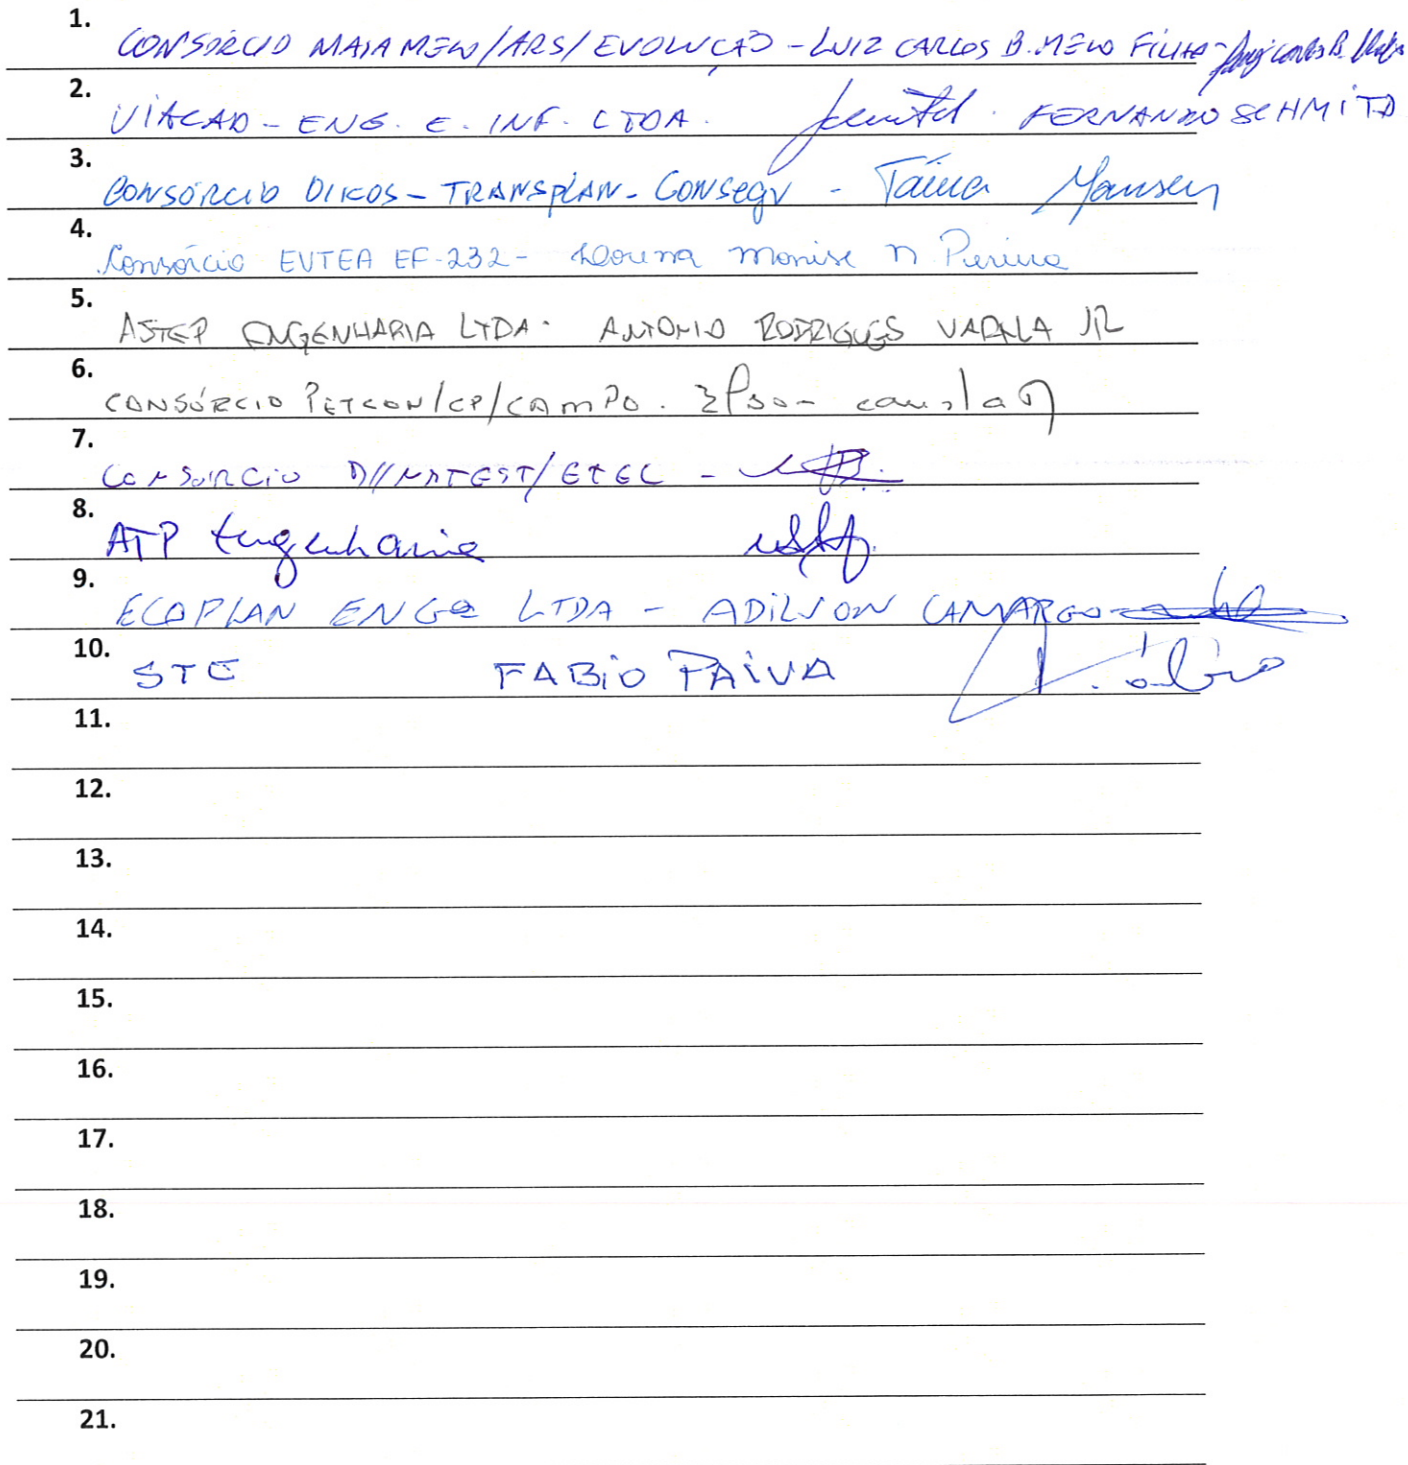 1. CONSÓRCIO MAIA MELO/ARS/EVOLUÇÃO - LUIZ CARLOS B. MELO FILHO - Luiz Carlos B.
2. VIACAD - ENG. E. INF. LTDA. FERNANDO SCHMITD
3. CONSÓRCIO OIKOS - TRANSPLAN - CONSEGV - Taina Hansen
4. Consórcio EVTEA EF-232 - Monise N Pereira
5. ASTEP ENGENHARIA LTDA. ANTONIO RODRIGUES VARELA JR
6. CONSÓRCIO PETCON/CP/CAMPO.
7. CONSÓRCIO D//NATEST/ETEC -
8. ATP Engenharia
9. ECOPLAN ENGª LTDA - ADILSON CAMARGO
10. STE FABIO PAIVA
11.
12.
13.
14.
15.
16.
17.
18.
19.
20.
21.